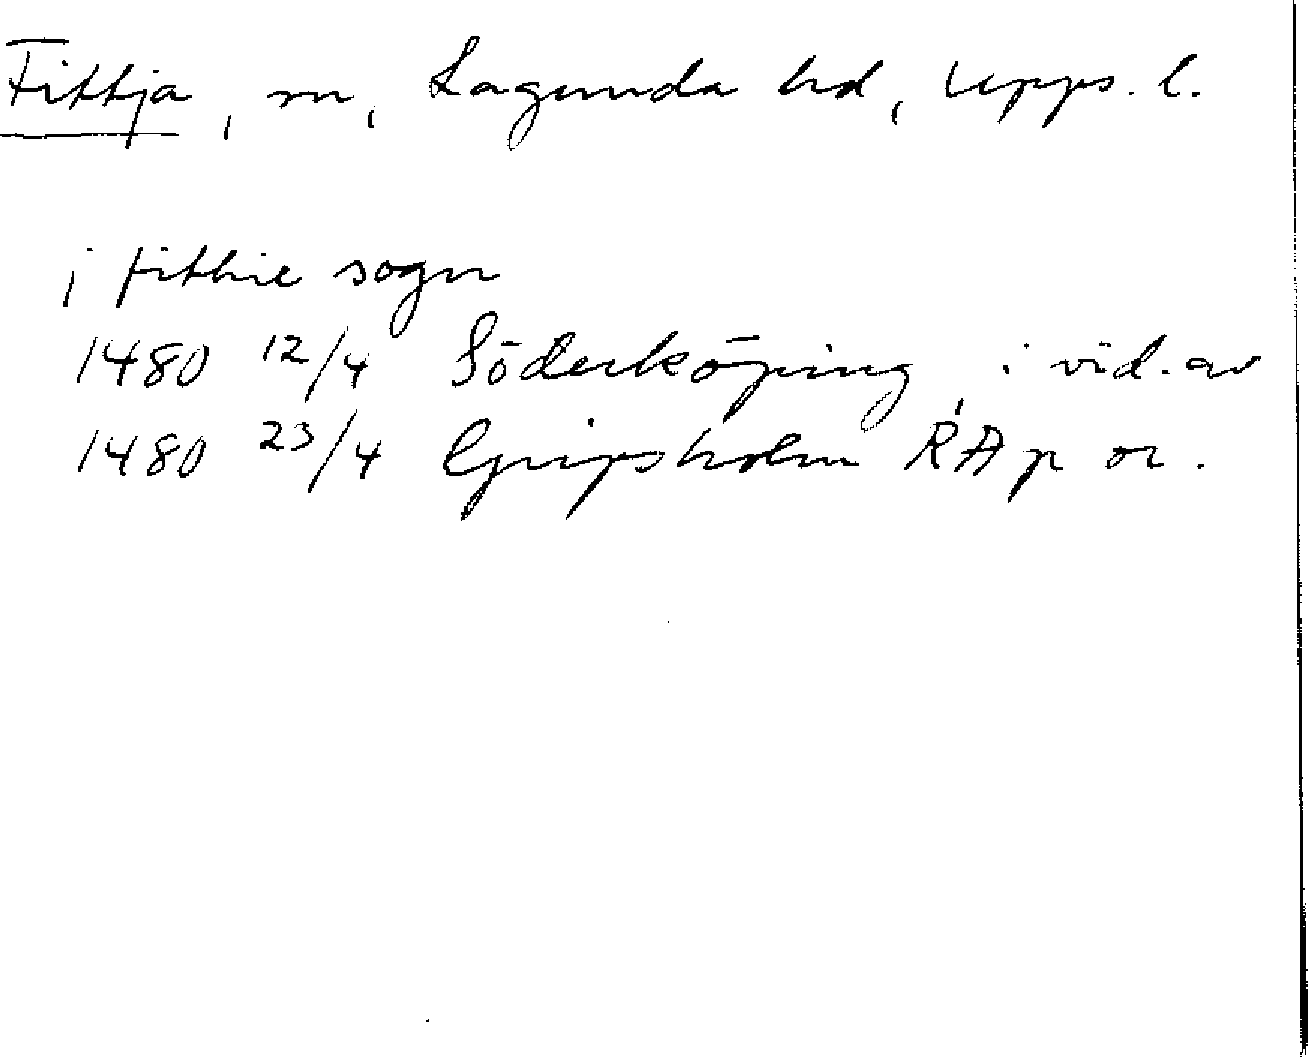 Fittja, sn, Lagunda hd, Upps. l.
j fitthie sogn
1480 12/4 Söderköping i vid. av
1480 23/4 Gripsholm RA p or.